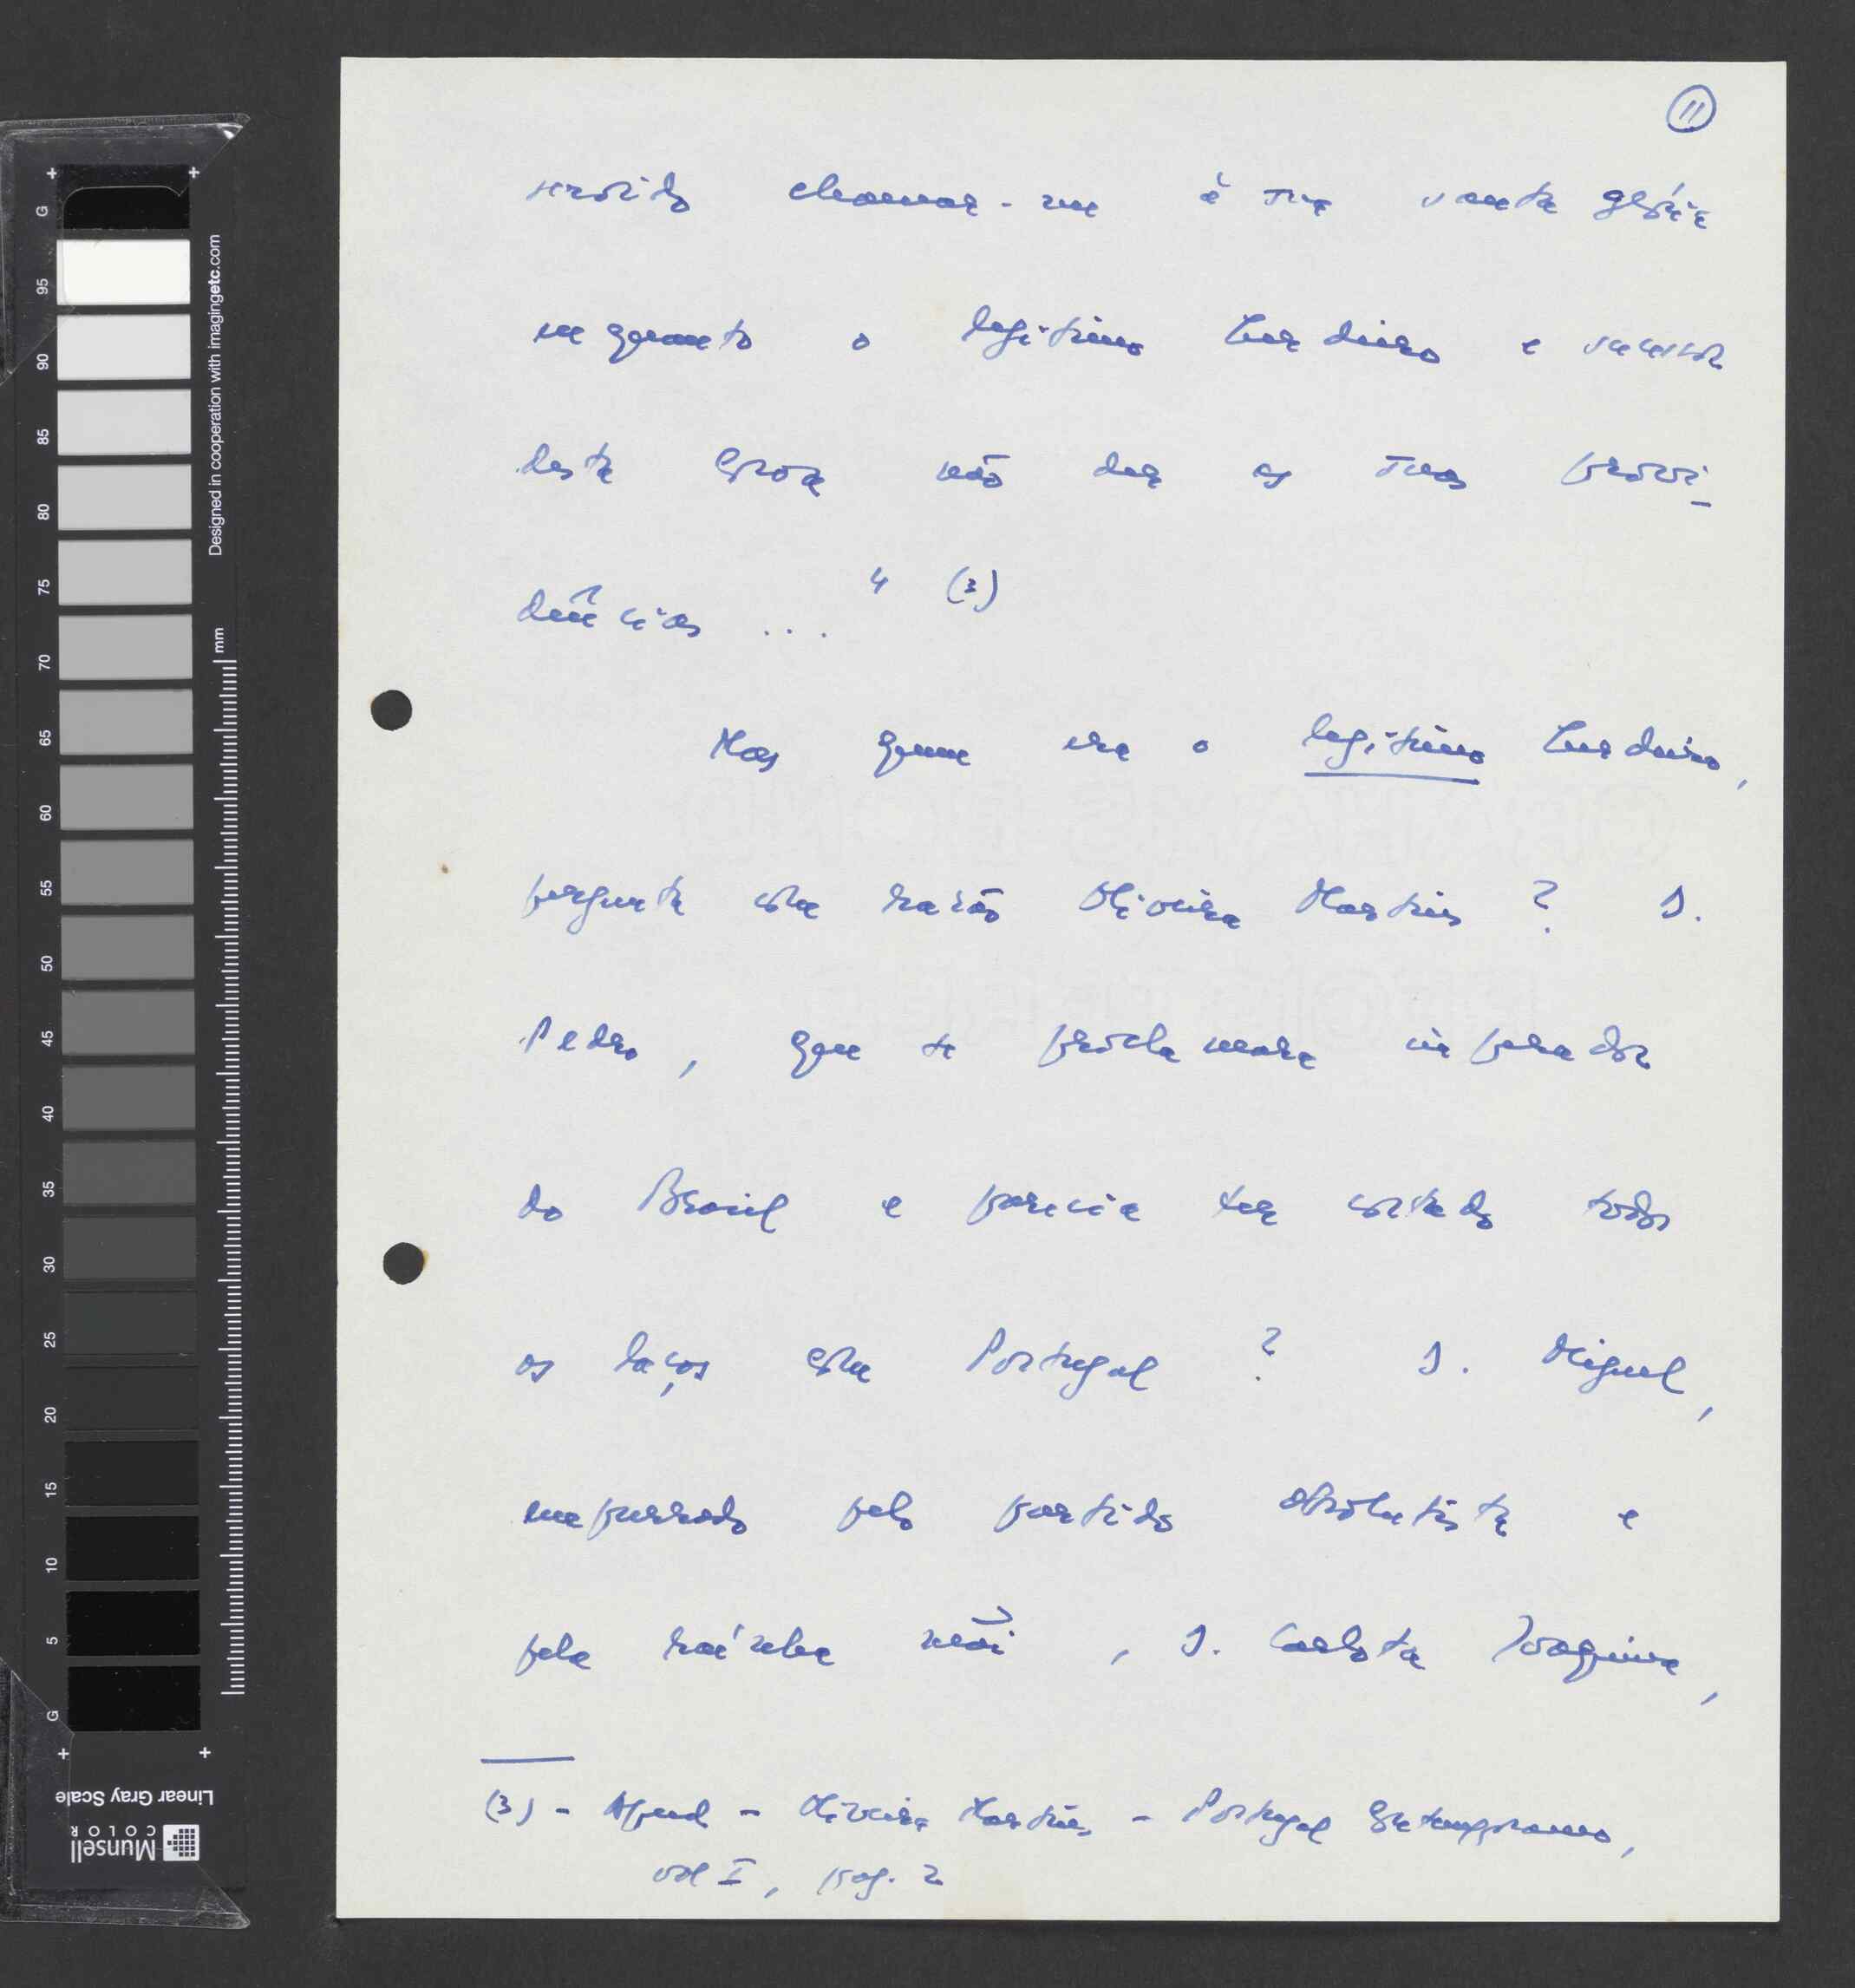 11
servido chamar-me à sua santa glória
enquanto o legítimo herdeiro e sucessor
desta coroa não der as suas provi-
dências ... " (3)
Mas quem era o legítimo herdeiro,
pergunta com razão Oliveira Martins? D.
Pedro, que se proclamara imperador
do Brasil e parecia ter cortado todos
os laços com Portugal? D. Miguel,
empurrado pelo partido absolutista e
pela rainha mãi, D. Carlota Joaquina,
(3) - Apud - Oliveira Martins, - Portugal Contemporâneo,
vol I, pag. 2
G
95
90
85
80
75
70
65
60
55
50
45
40
35
30
25
20
15
10
5
G
Designed in cooperation with imagingetc.com
mm
Linear Gray Scale
Munsell
COLOR